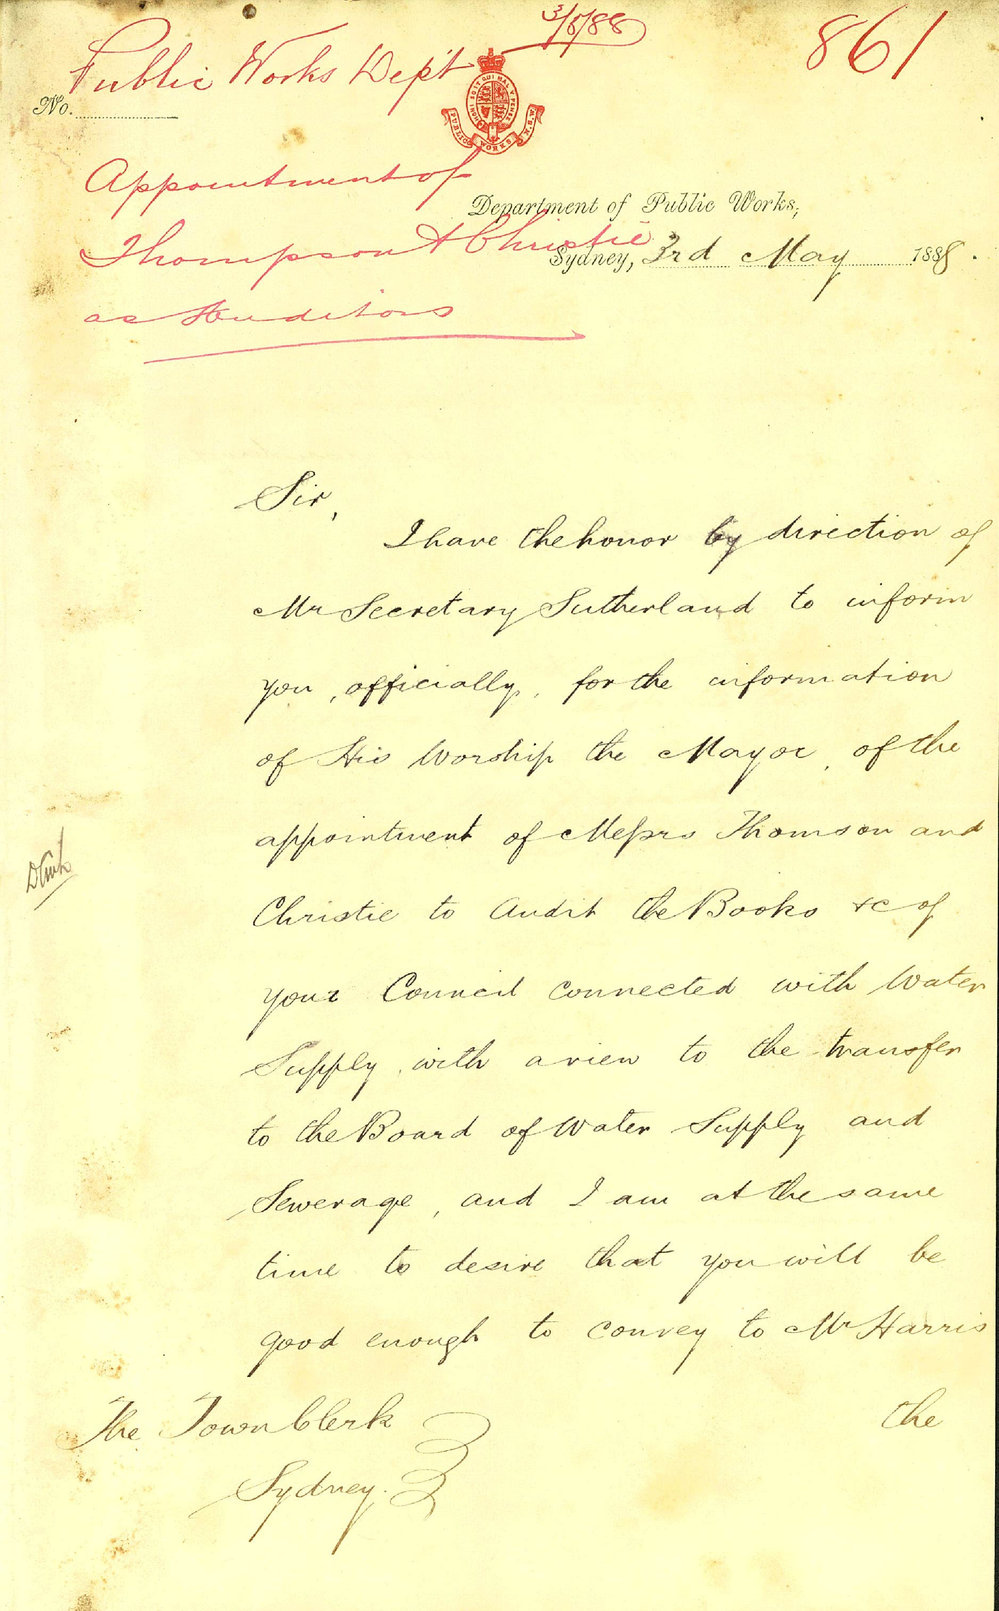 3/5/88
861
Public Works Dep't
No.
HONI SOIT QUI MAL Y PENSE
PUBLIC WORKS N.S.W.
Appointment of
Department of Public Works,
Thompson & Christie
Sydney, 3rd May 1888.
as Auditors
Sir,
I have the honor by direction of
Mr Secretary Sutherland to inform
you, officially, for the information
of His Worship the Mayor, of the
appointment of Messrs Thomson and
Christie to Audit the Books &c of
your Council connected with Water
Supply, with a view to the transfer
to the Board of Water Supply and
Sewerage, and I am at the same
time to desire that you will be
good enough to convey to Mr Harris
The Town Clerk
the
Sydney.